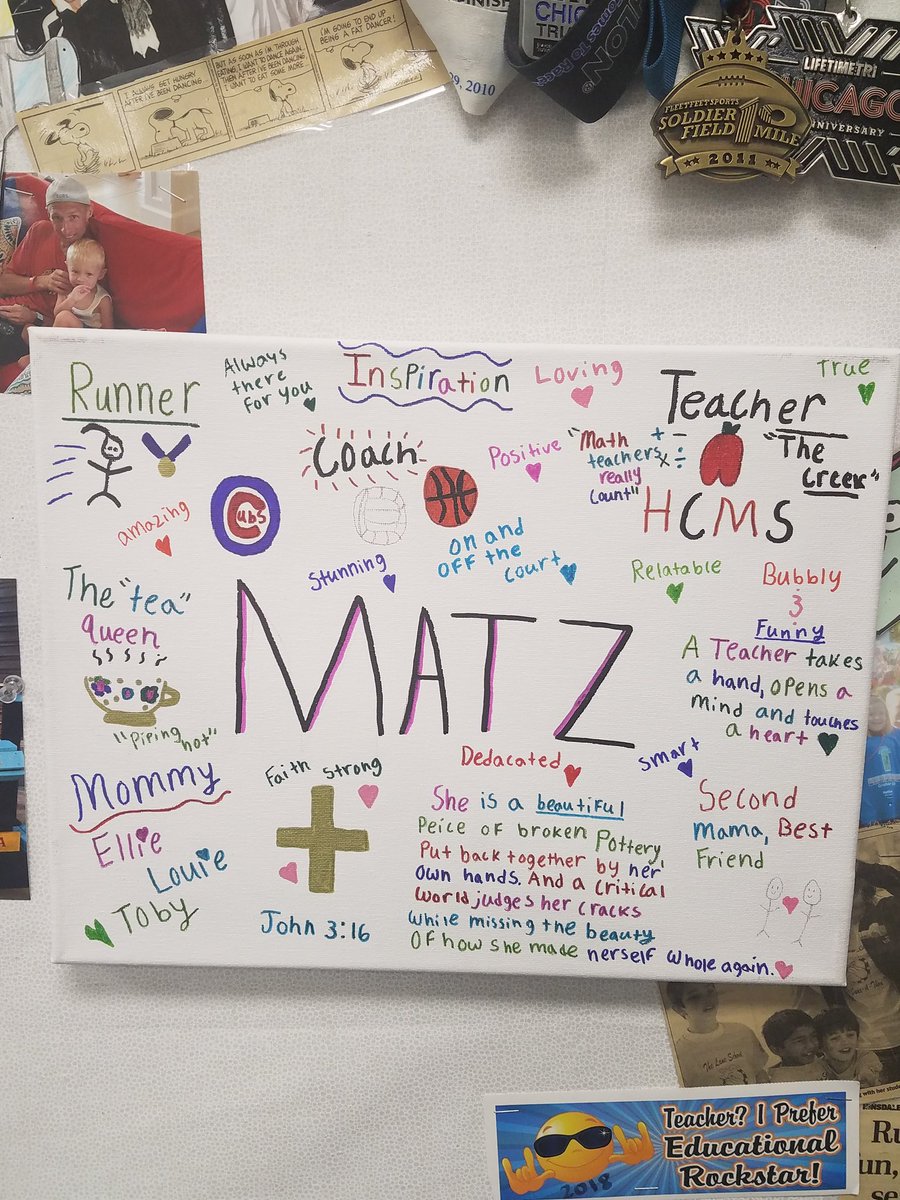 I ALWAYS GET HUNGRY AFTER I'VE BEEN DANCING
BUT AS SOON AS I'M THROUGH EATING, I WANT TO DANCE AGAIN
AFTER I'VE BEEN DANCING, I WANT TO EAT SOME MORE
I'M GOING TO END UP BEING A FAT DANCER!
29, 2010
CHIC
TRI
LIFETIME TRI
CHICAGO
ANNIVERSARY
FLEET FEET SPORTS
SOLDIER
FIELD 10 MILE
2011
Runner
Always
there
for you
Inspiration
Loving
Teacher
True
Coach
Positive
"Math
teachers
really
count"
+ − × ÷
"The
Creek"
HCMS
Cubs
amazing
Stunning
on and
off the
court
Relatable
Bubbly
&
Funny
The "tea"
queen
"Piping hot"
MATZ
A Teacher takes
a hand, opens a
mind and touches
a heart
Dedacated
smart
Mommy
Ellie
Louie
Toby
Faith Strong
John 3:16
She is a beautiful
Peice of broken Pottery,
Put back together by her
own hands. And a critical
world judges her cracks
while missing the beauty
Of how she made herself whole again.
Second
mama, Best
Friend
Teacher? I Prefer
Educational
Rockstar!
2018